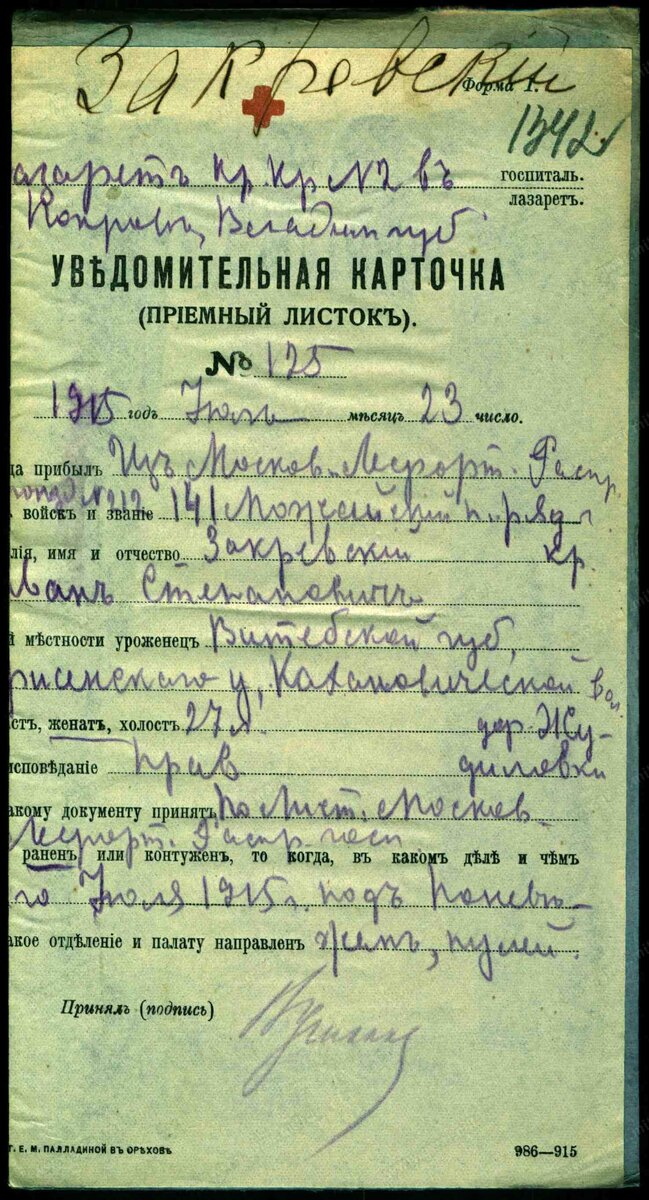 Закревскій
Форма 1.
1342
азаретъ Кр. Кр № 2 въ госпиталь.
лазаретъ.
Владим губ
УВѢДОМИТЕЛЬНАЯ КАРТОЧКА
(ПРІЕМНЫЙ ЛИСТОКЪ).
№ 125
1915 годъ Іюль мѣсяцъ 23 число.
да прибылъ Изъ Москов. Лефорт. Распр.
войскъ и званіе 141 Можайскій п. ряд
илія, имя и отчество Закревскій кр.
ванъ Степановичъ
й мѣстности уроженецъ Витебской губ,
рисенскаго у, Кохановической вол.
стъ, женатъ, холостъ 27 л. дер. Жу-
исповѣданіе Прав диловки
акому документу принятъ По Лист. Москов.
Лефорт. Распр госп
раненъ или контуженъ, то когда, въ какомъ дѣлѣ и чѣмъ
го Іюля 1915 г. подъ Понев-
акое отдѣленіе и палату направленъ жемъ, пулей.
Принялъ (подпись)
Т. Е. М. ПАЛЛАДИНОЙ ВЪ ОРѢХОВѢ 986—915